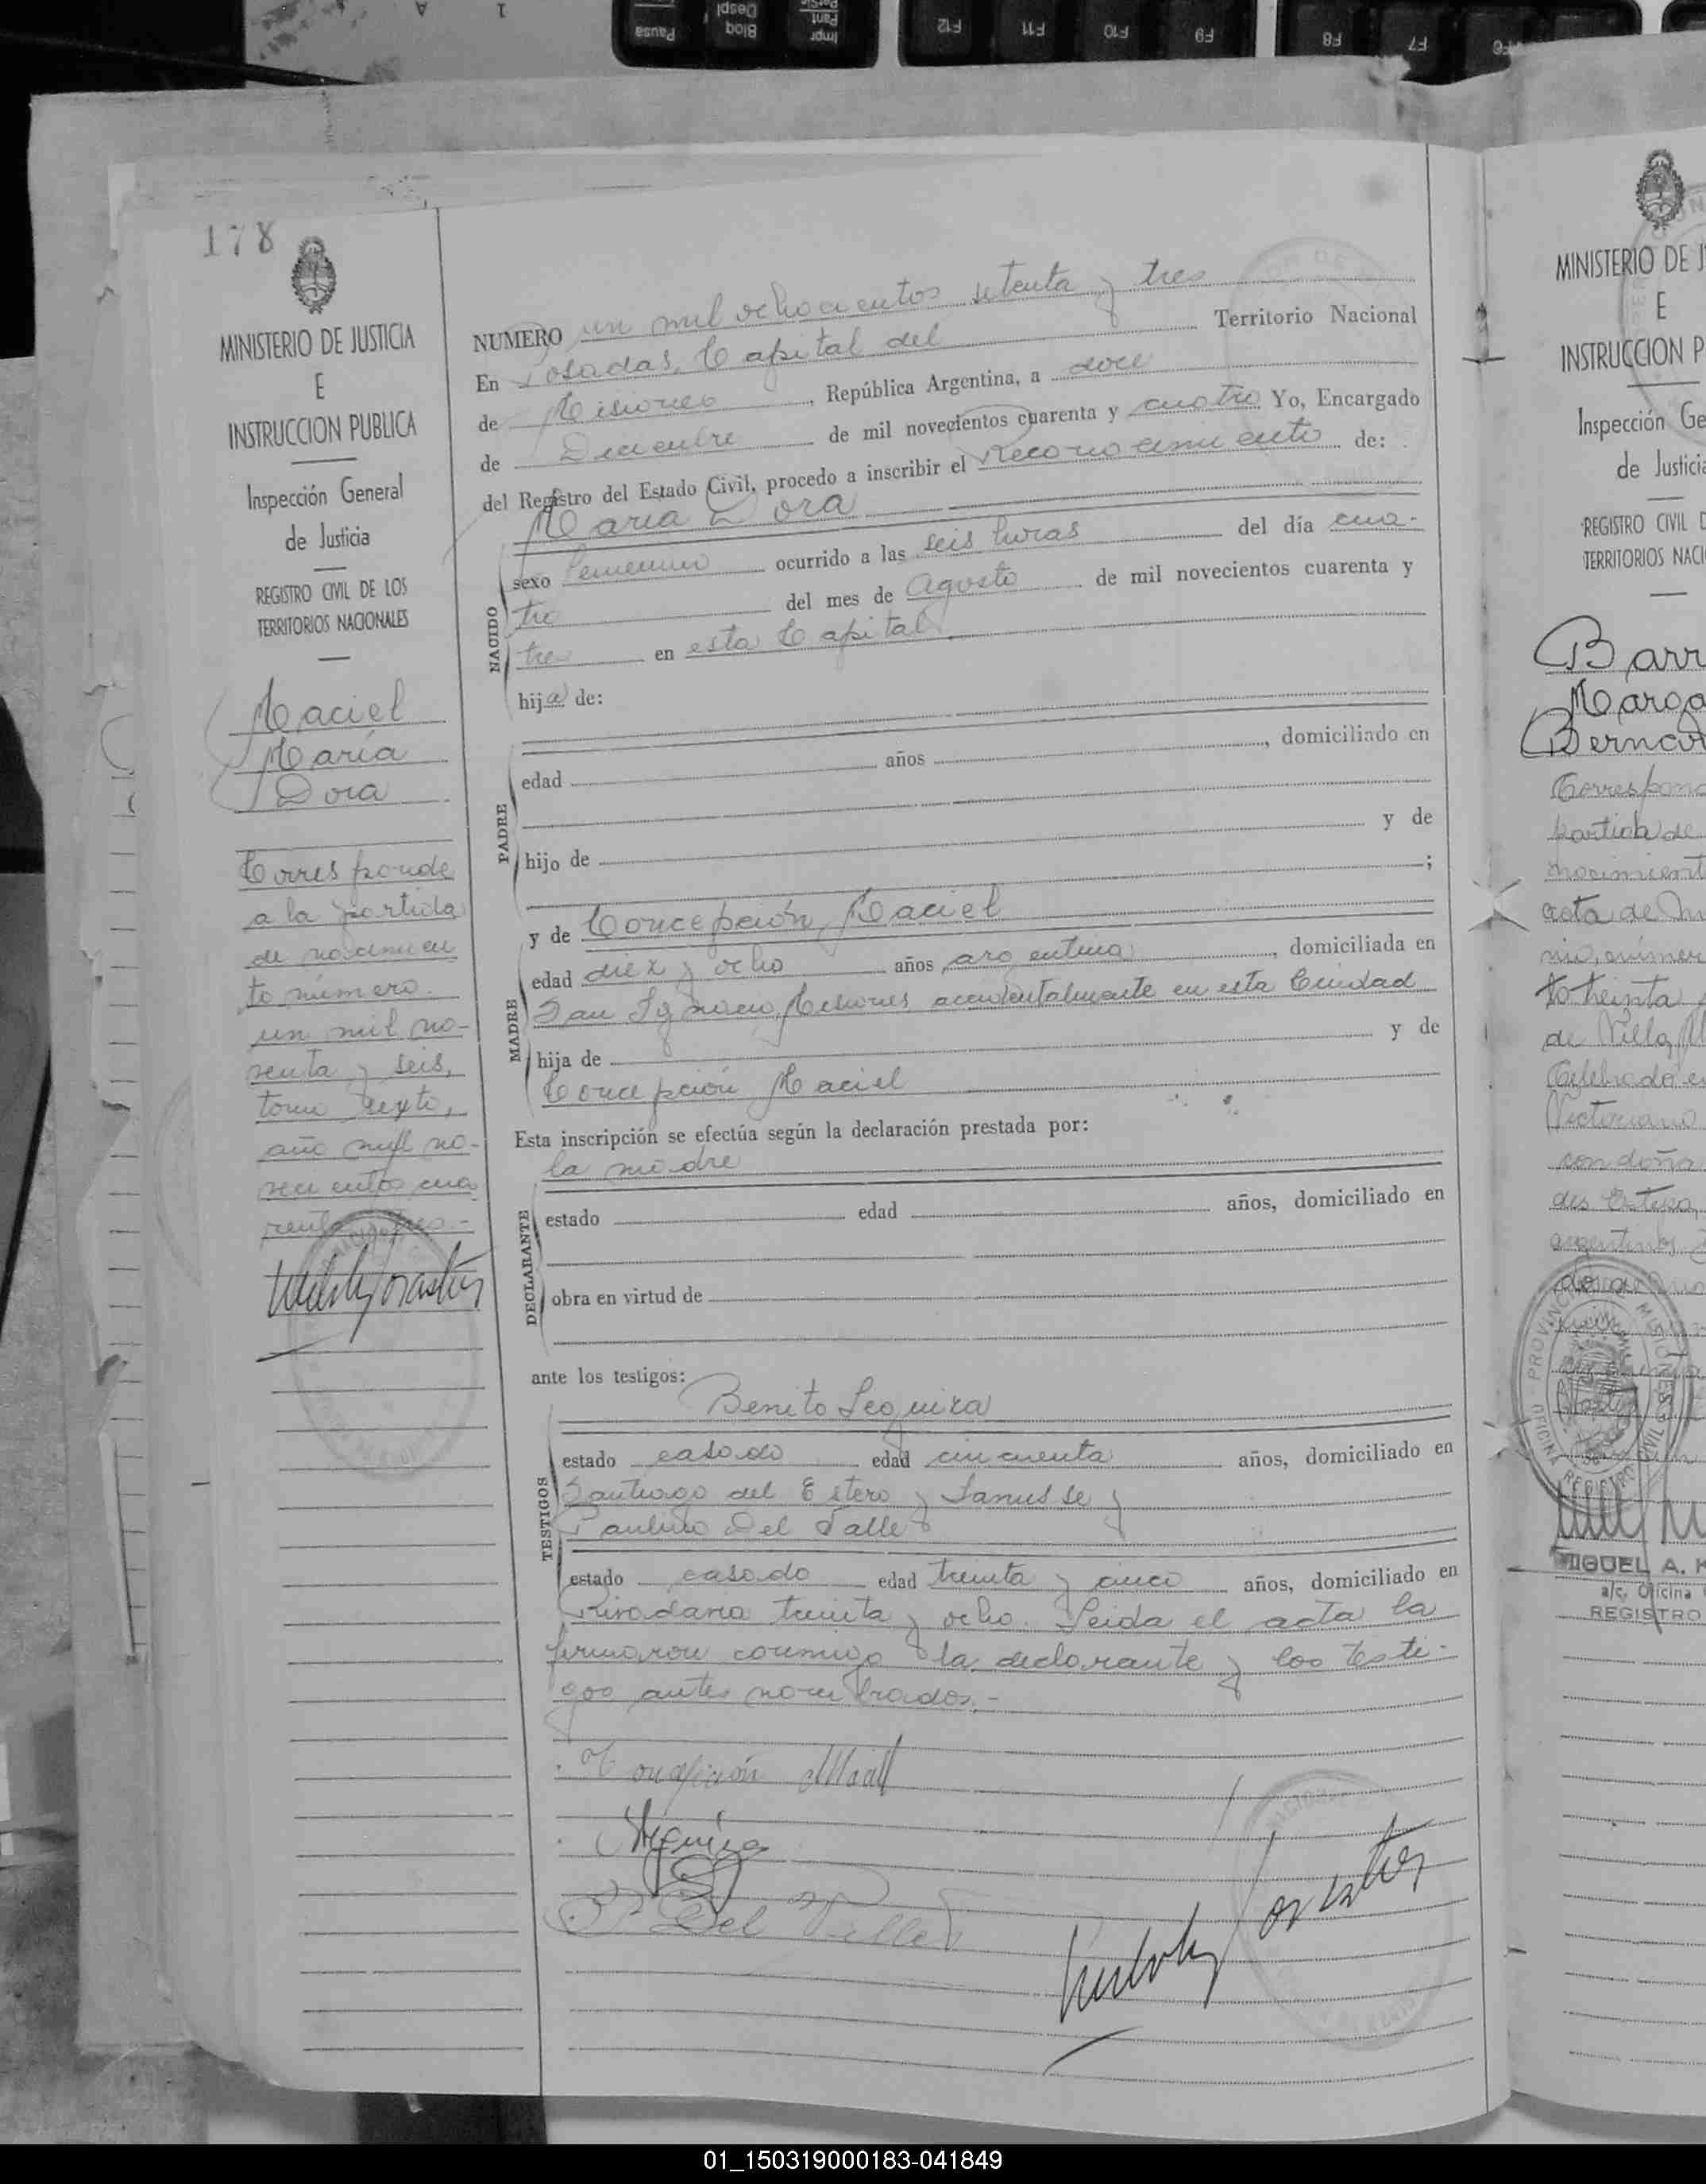 Pausa
Bloq
Despl
Impr
Pant
F12
F11
F10
F9
F8
F7
F6
178
MINISTERIO DE JUSTICIA
E
INSTRUCCION PUBLICA
Inspección General
de Justicia
REGISTRO CIVIL DE LOS
TERRITORIOS NACIONALES
Maciel
María
Dora
Corresponde
a la partida
de nacimien
to número
un mil no-
venta y seis,
tomo sexto,
año mil no-
vecientos cua
renta y tres.-
NUMERO un mil ochocientos setenta y tres
En Posadas, Capital del Territorio Nacional
de Misiones, República Argentina, a doce
de Diciembre de mil novecientos cuarenta y cuatro Yo, Encargado
del Registro del Estado Civil, procedo a inscribir el Reconocimiento de:
María Dora
NACIDO
sexo femenino ocurrido a las seis horas del día cua-
tro del mes de Agosto de mil novecientos cuarenta y
tres en esta Capital.
hija de:
PADRE
edad años , domiciliado en
hijo de y de
;
MADRE
y de Concepción Maciel
edad diez y ocho años argentina, domiciliada en
San Ignacio, Misiones, accidentalmente en esta Ciudad
hija de y de
Concepción Maciel
Esta inscripción se efectúa según la declaración prestada por:
la madre
DECLARANTE
estado edad años, domiciliado en
obra en virtud de
ante los testigos:
TESTIGOS
Benito Sequira
estado casado edad cincuenta años, domiciliado en
Santiago del Estero y Lanusse y
Paulino Del Valle
estado casado edad treinta y cinco años, domiciliado en
Rivadavia treinta y ocho. Leida el acta la
firmaron conmigo la declarante y los testi-
gos antes nombrados.-
Concepción Maciel
Sequira
P. Del Valle
MINISTERIO DE J
E
INSTRUCCION P
Inspección Ge
de Justicia
REGISTRO CIVIL D
TERRITORIOS NACI
Barr
Marga
Bernar
Correspond
partida de
nacimient
acta de
to treinta
de Villa
Celebrado e
Victoriano
con doña
argentinos
PROVINCIA DE MISIONES
OFICINA REGISTRO CIVIL
MIGUEL A. K
a/c. Oficina
REGISTRO
01_150319000183-041849